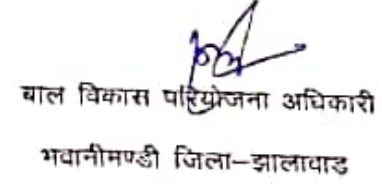 बाल विकास परियोजना अधिकारी
भवानीमण्डी जिला–झालावाड